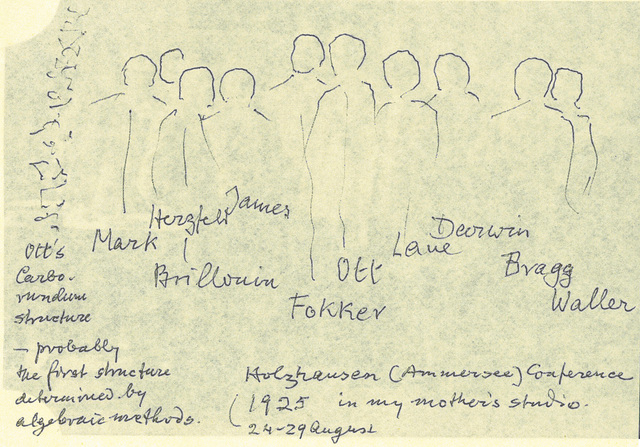 Mark
Herzfeld
James
Brillouin
Fokker
Ott
Laue
Darwin
Bragg
Waller
Ott's
Carbo-
rundum
structure
– probably
the first structure
determined by
algebraic methods.
Holzhausen (Ammersee) Conference
1925 in my mother's studio.
24-29 August